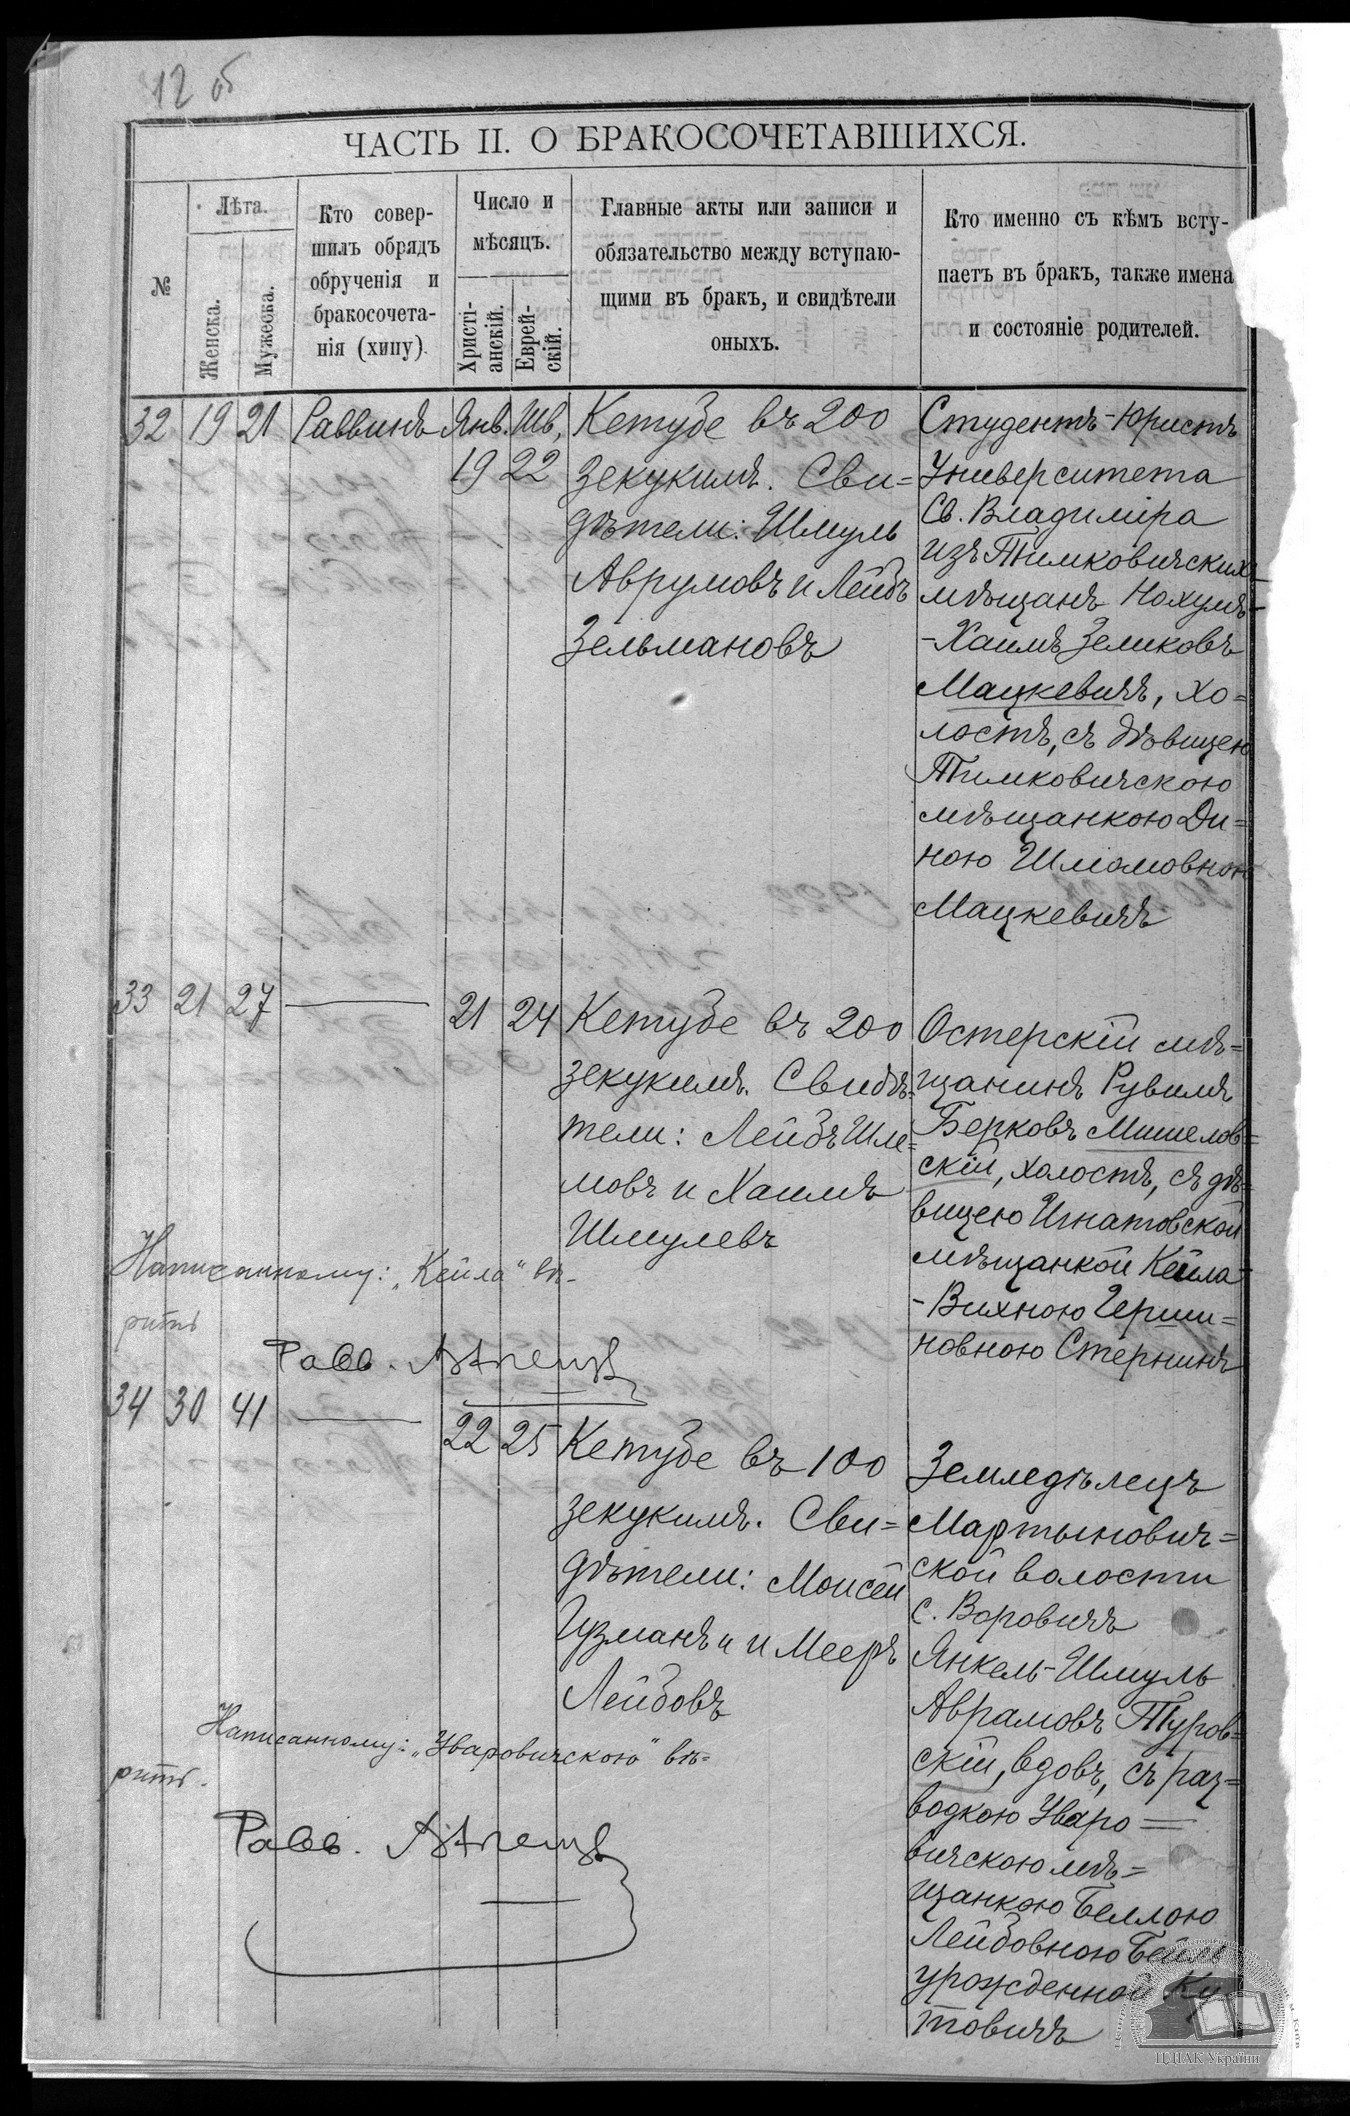 12 об
ЧАСТЬ II. О БРАКОСОЧЕТАВШИХСЯ.
№
Лѣта.
Женска.
Мужеска.
Кто совер-
шилъ обрядъ
обрученія и
бракосочета-
нія (хипу).
Число и
мѣсяцъ.
Христі-
анскій.
Еврей-
скій.
Главные акты или записи и
обязательство между вступаю-
щими въ бракъ, и свидѣтели
оныхъ.
Кто именно съ кѣмъ всту-
паетъ въ бракъ, также имена
и состояніе родителей.
32 19 21 Раввинъ Янв. Шв.
19 22
Кетубе въ 200
зекукимъ. Сви=
дѣтели: Шмуль
Аврумовъ и Лейбъ
Зельмановъ
Студентъ-Юристъ
Университета
Св. Владиміра
изъ Тимковичскихъ
мѣщанъ Нохумъ-
-Хаимъ Зеликовъ
Мацкевичъ, хо=
лостъ, съ дѣвицею
Тимковичскою
мѣщанкою Ди=
ною Шломовною
Мацкевичъ
33 21 27 — 21 24
Кетубе въ 200
зекукимъ. Свидѣ=
тели: Лейбъ Шле=
мовъ и Хаимъ
Шмулевъ
Остерскій мѣ=
щанинъ Рувимъ
Берковъ Мишелов=
скій, холостъ, съ дѣ=
вицею Игнатовской
мѣщанкой Кейла-
-Вихною Герши=
новною Стернинъ
Написанному: „Кейла" вѣ-
рить
Равв.
34 30 41 — 22 25
Кетубе въ 100
зекукимъ. Сви=
дѣтели: Моисей
Гузманъ и и Мееръ
Лейбовъ
Земледѣлецъ
Мартынович=
ской волости
с. Воровичъ
Янкель-Шмуль
Аврамовъ Туров=
скій, вдовъ, съ раз=
водкою Уваро=
вичскою мѣ=
щанкою Беллою
Лейбовною
урожденной Ку
товичъ
Написанному: „Уваровичскою" вѣ=
рить.
Равв.
ЦДІАК України